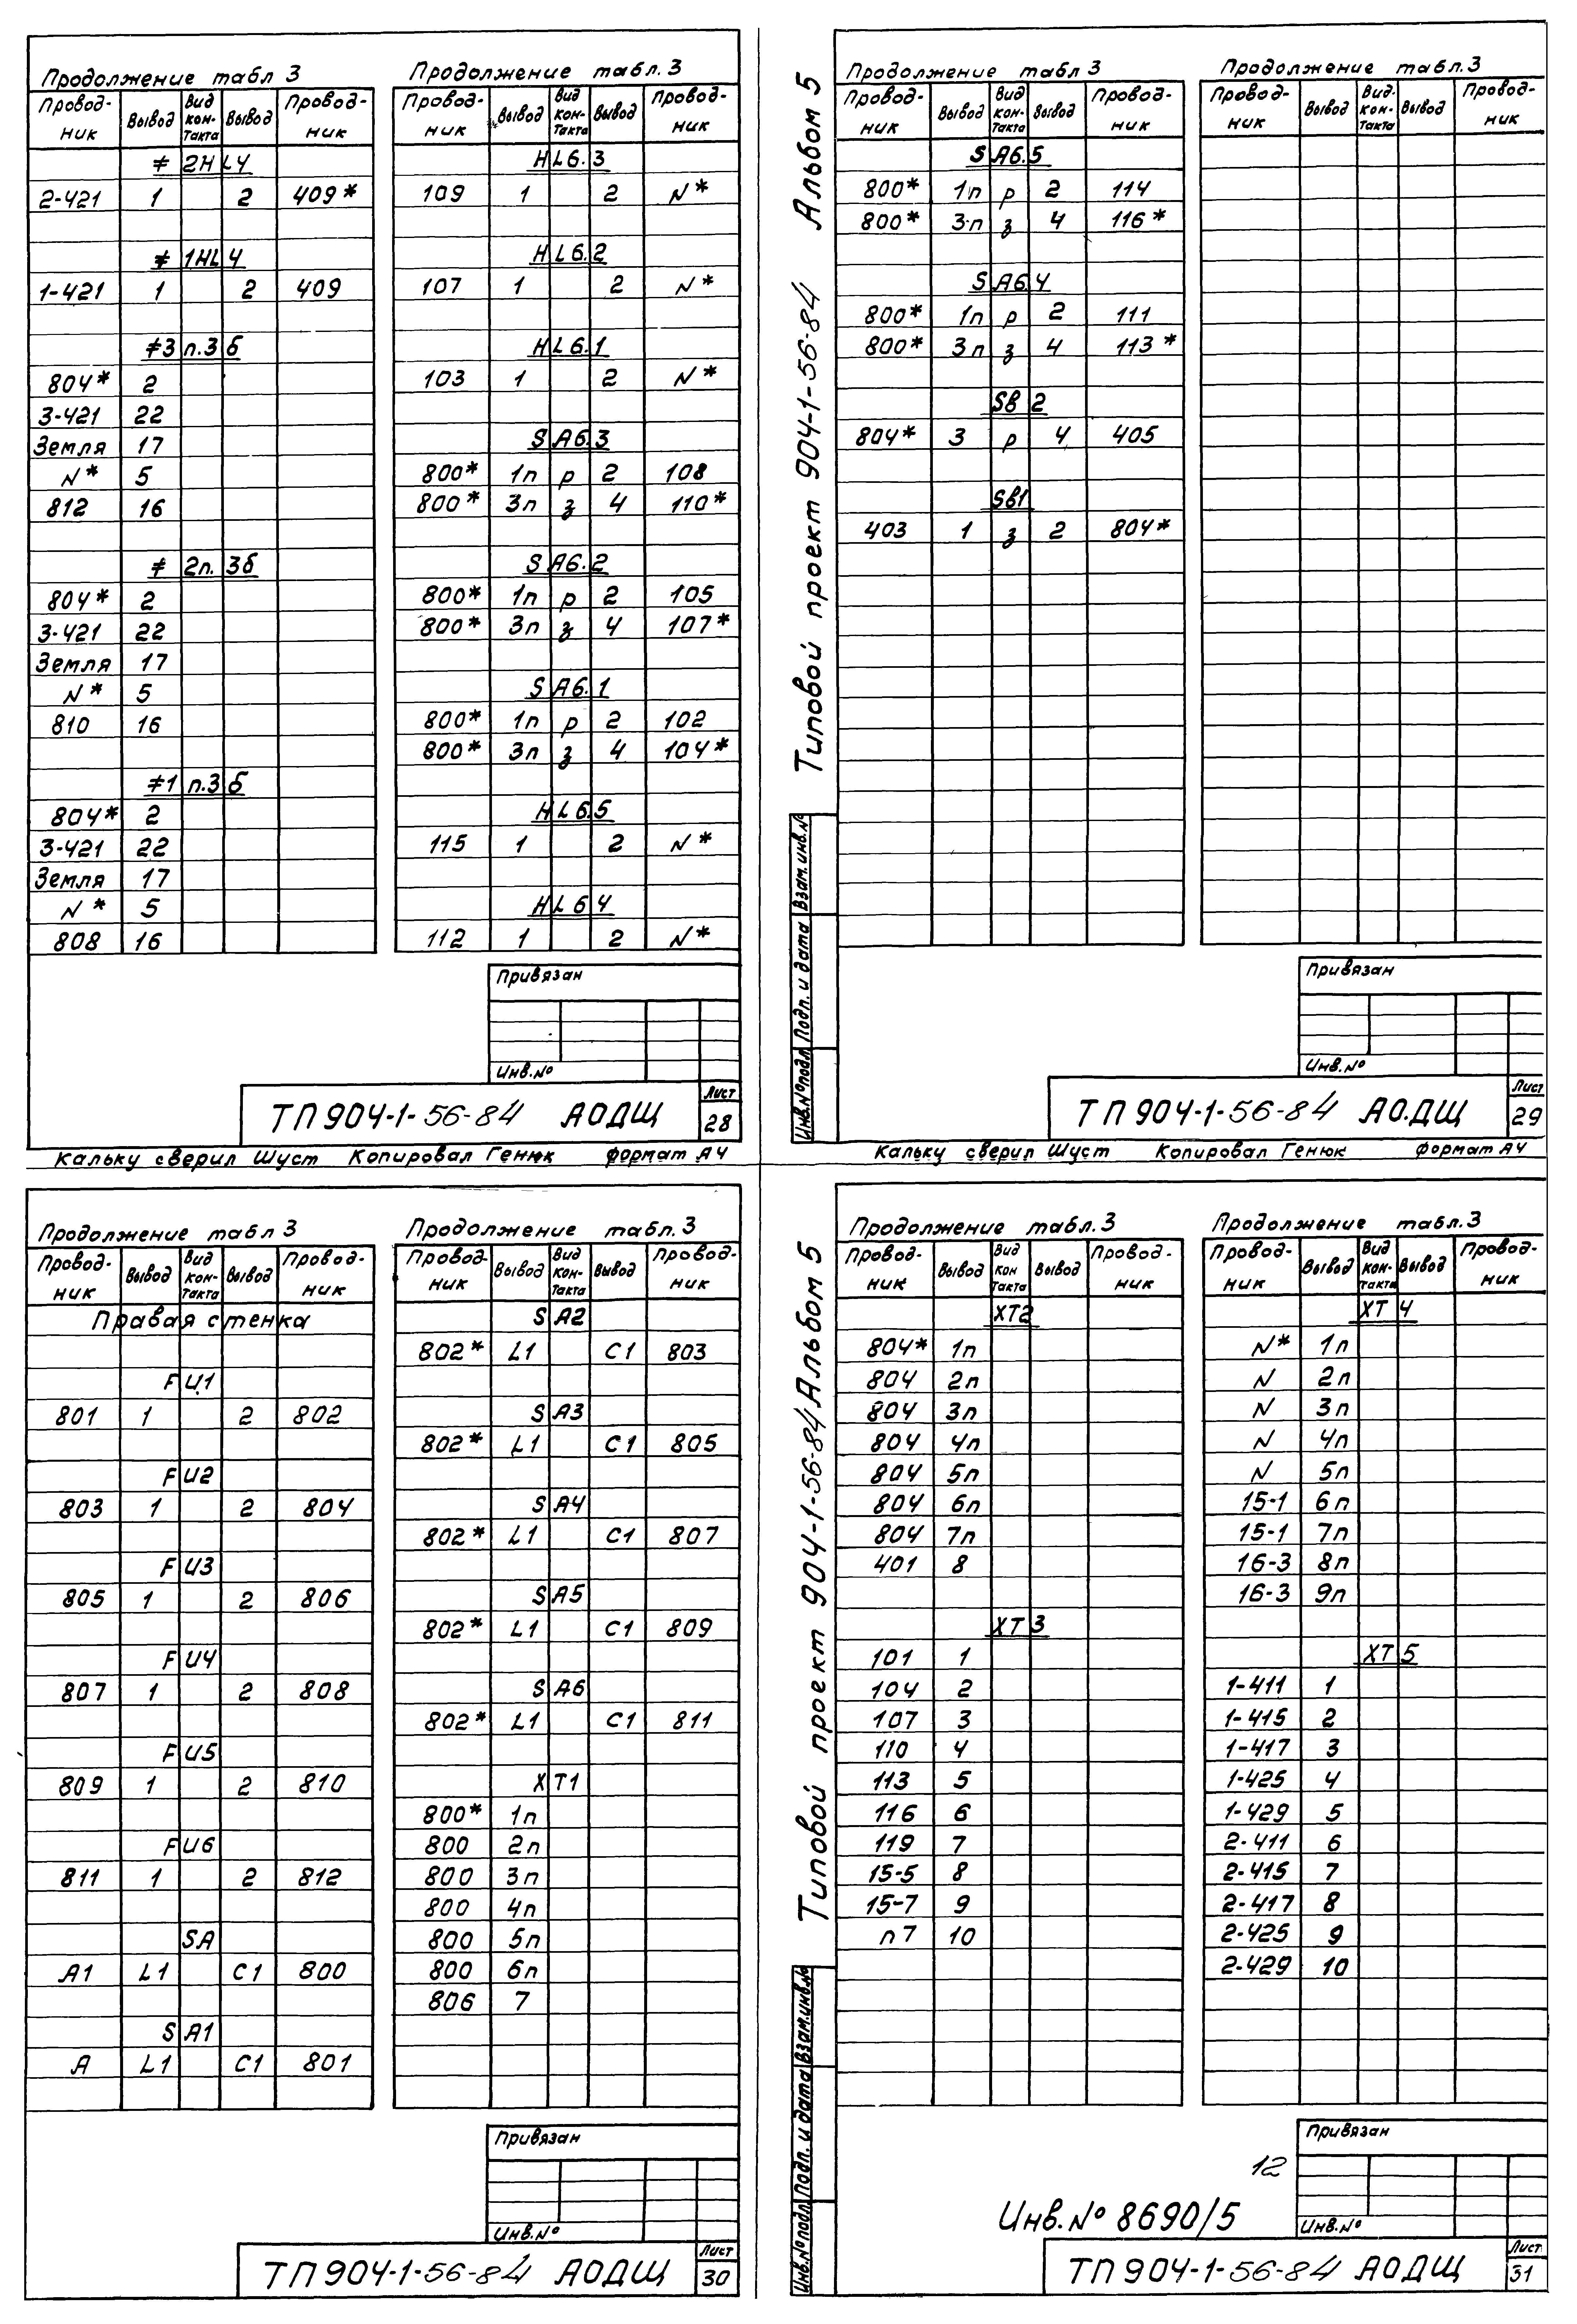 Продолжение табл 3
Провод-ник Вывод Вид кон-такта Вывод Провод-ник
≠ 2HL4
2-421 1 2 409*
≠ 1HL4
1-421 1 2 409
≠3 п.3б
804* 2
3-421 22
Земля 17
N* 5
812 16
≠ 2п. 3б
804* 2
3-421 22
Земля 17
N* 5
810 16
≠1 п.3б
804* 2
3-421 22
Земля 17
N* 5
808 16
Продолжение табл. 3
Провод-ник Вывод Вид кон-такта Вывод Провод-ник
HL6.3
109 1 2 N*
HL6.2
107 1 2 N*
HL6.1
103 1 2 N*
SA6.3
800* 1п р 2 108
800* 3п з 4 110*
SA6.2
800* 1п р 2 105
800* 3п з 4 107*
SA6.1
800* 1п р 2 102
800* 3п з 4 104*
HL6.5
115 1 2 N*
HL6 4
112 1 2 N*
Привязан
Инв.№
ТП 904-1-56-84 АОДЩ
Лист
28
Кальку сверил Шуст Копировал Генюк формат А4
Типовой проект 904-1-56-84 Альбом 5
Продолжение табл 3
Провод-ник Вывод Вид кон-такта Вывод Провод-ник
SA6.5
800* 1п р 2 114
800* 3п з 4 116*
SA6.4
800* 1п р 2 111
800* 3п з 4 113*
SB 2
804* 3 р 4 405
SB1
403 1 з 2 804*
Продолжение табл.3
Провод-ник Вывод Вид кон-такта Вывод Провод-ник
Инв.№ подл. Подп. и дата Взам.инв.№
Привязан
Инв.№
ТП 904-1-56-84 АО.ДЩ
Лист
29
Кальку сверил Шуст Копировал Генюк формат А4
Продолжение табл 3
Провод-ник Вывод Вид кон-такта Вывод Провод-ник
Правая стенка
FU1
801 1 2 802
FU2
803 1 2 804
FU3
805 1 2 806
FU4
807 1 2 808
FU5
809 1 2 810
FU6
811 1 2 812
SA
A1 L1 C1 800
SA1
A L1 C1 801
Продолжение табл. 3
Провод-ник Вывод Вид кон-такта Вывод Провод-ник
SA2
802* L1 C1 803
SA3
802* L1 C1 805
SA4
802* L1 C1 807
SA5
802* L1 C1 809
SA6
802* L1 C1 811
XT1
800* 1п
800 2п
800 3п
800 4п
800 5п
800 6п
806 7
Привязан
Инв.№
ТП 904-1-56-84 АОДЩ
Лист
30
Типовой проект 904-1-56-84 Альбом 5
Продолжение табл. 3
Провод-ник Вывод Вид кон такта Вывод Провод-ник
XT2
804* 1п
804 2п
804 3п
804 4п
804 5п
804 6п
804 7п
401 8
XT 3
101 1
104 2
107 3
110 4
113 5
116 6
119 7
15-5 8
15-7 9
п7 10
Продолжение табл.3
Провод-ник Вывод Вид кон-такта Вывод Провод-ник
XT 4
N* 1п
N 2п
N 3п
N 4п
N 5п
15-1 6п
15-1 7п
16-3 8п
16-3 9п
XT 5
1-411 1
1-415 2
1-417 3
1-425 4
1-429 5
2-411 6
2-415 7
2-417 8
2-425 9
2-429 10
Инв.№ подл. Подп. и дата Взам.инв.№
12
Инв.№ 8690/5
Привязан
Инв.№
ТП 904-1-56-84 АОДЩ
Лист
31